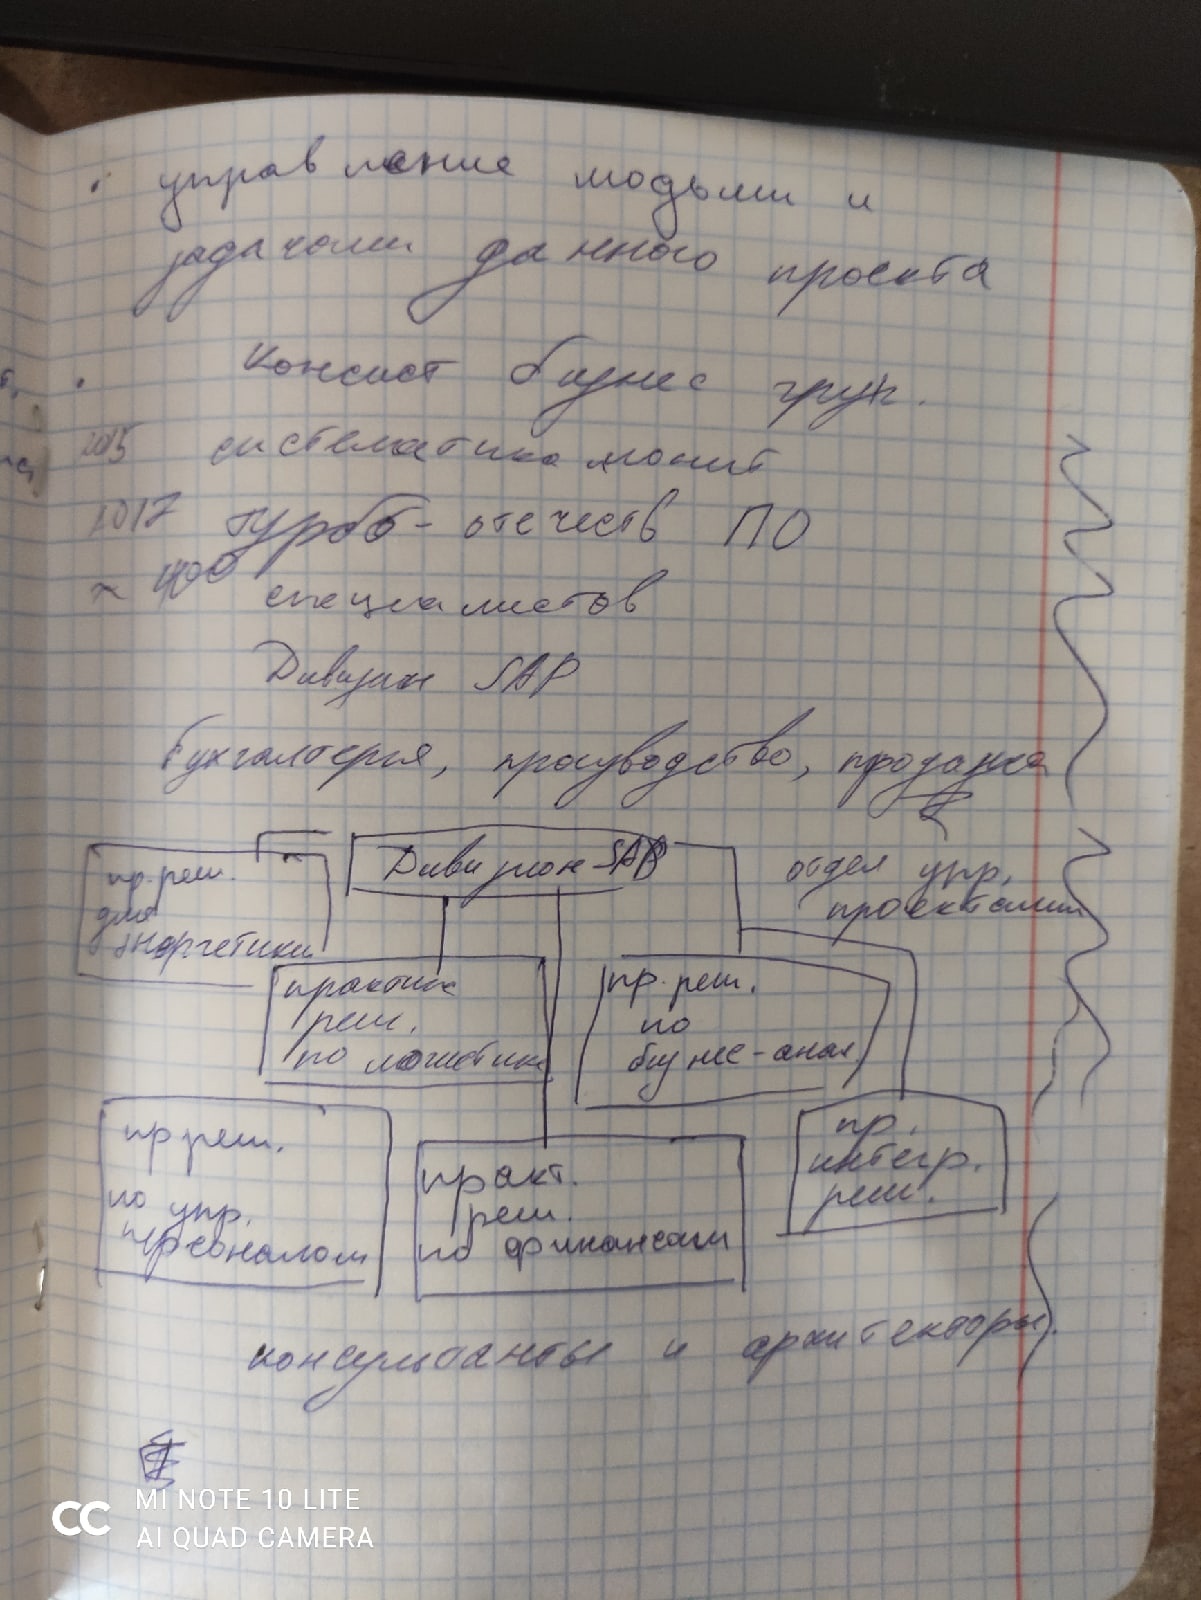 • управление людьми и
задачами данного проекта
• Консист бизнес груп.
2015 систематика монит
2017 турбо- отечеств ПО
~ 400 специалистов
Дивизион SAP
бухгалтерия, производство, продажа
Дивизион SAP
отдел упр.
проектами
пр. реш.
для
энергетики
практик
реш.
по логистике
пр. реш.
по
бизнес-анал.
пр реш.
по упр.
персоналом
практ.
реш.
по финансам
пр.
интегр.
реш.
консультанты и архитекторы.
MI NOTE 10 LITE
AI QUAD CAMERA